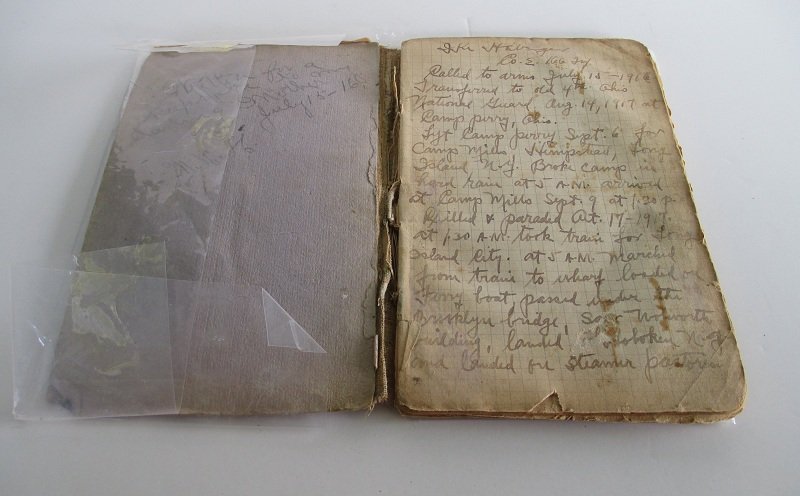 July 15-16
Co. E. 166 Inf
Called to arms July 15-1916
Transferred to old 4th Ohio
National Guard Aug. 14, 1917 at
Camp perry, Ohio.
Lft Camp perry Sept. 6 for
Camp Mills - Hempstead, Long
Island N.Y. Broke camp in
hard rain at 5 A.M. arrived
at Camp Mills Sept. 9 at 1:20 p
Drilled & paraded Oct. 17-1917.
at 1:30 A.M. took train for Long
Island City. at 5 A.M. marched
from train to wharf loaded on
ferry boat, passed under the
Brooklyn bridge, saw Woworth
building, landed Hoboken N.J.
and landed on steamer pastores